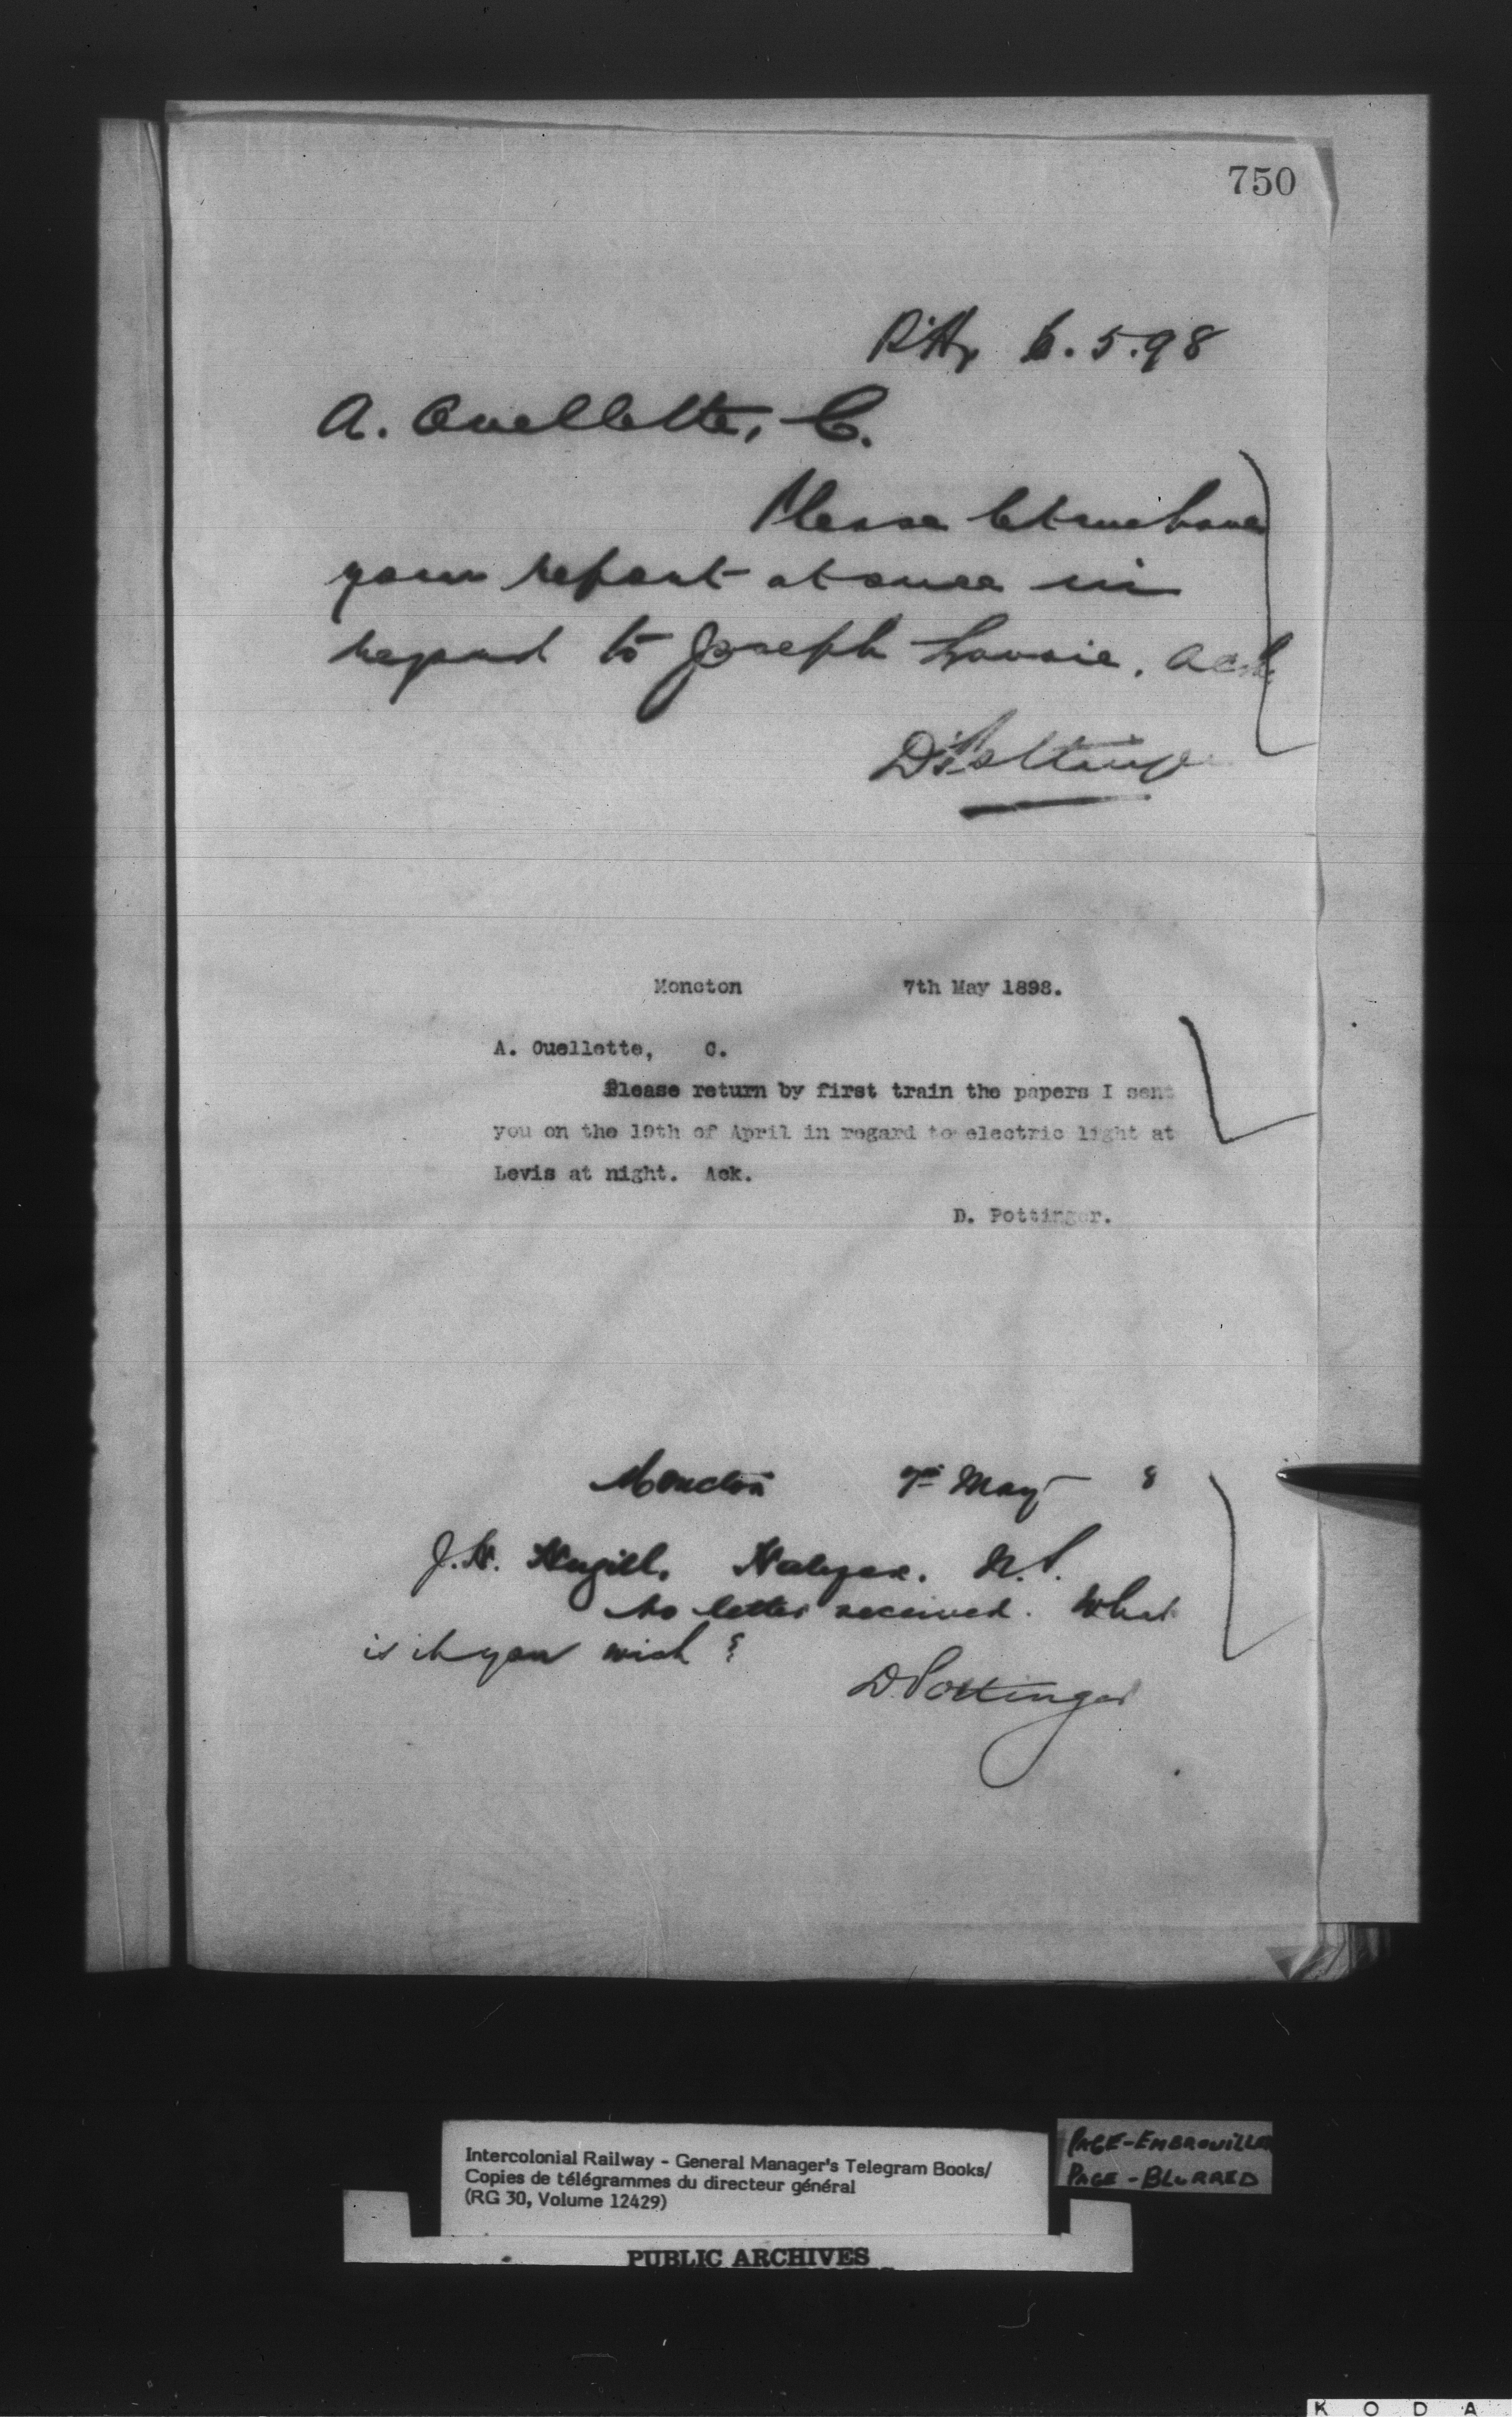 750
6.5.98
A. Ouellette, C.
Please let me have
your report at once in
regard to Joseph Lavoie. Ack.
D. Pottinger
Moncton 7th May 1898.
A. Ouellette, C.
Please return by first train the papers I sent
you on the 19th of April in regard to electric light at
Levis at night. Ack.
D. Pottinger.
Moncton 7th May 8
J. H. Hugill, Halifax. N.S.
No letter received. What
is it you wish?
D. Pottinger
Intercolonial Railway - General Manager's Telegram Books/
Copies de télégrammes du directeur général
(RG 30, Volume 12429)
PAGE-EMBROUILLÉE
PAGE-BLURRED
PUBLIC ARCHIVES
K O D A